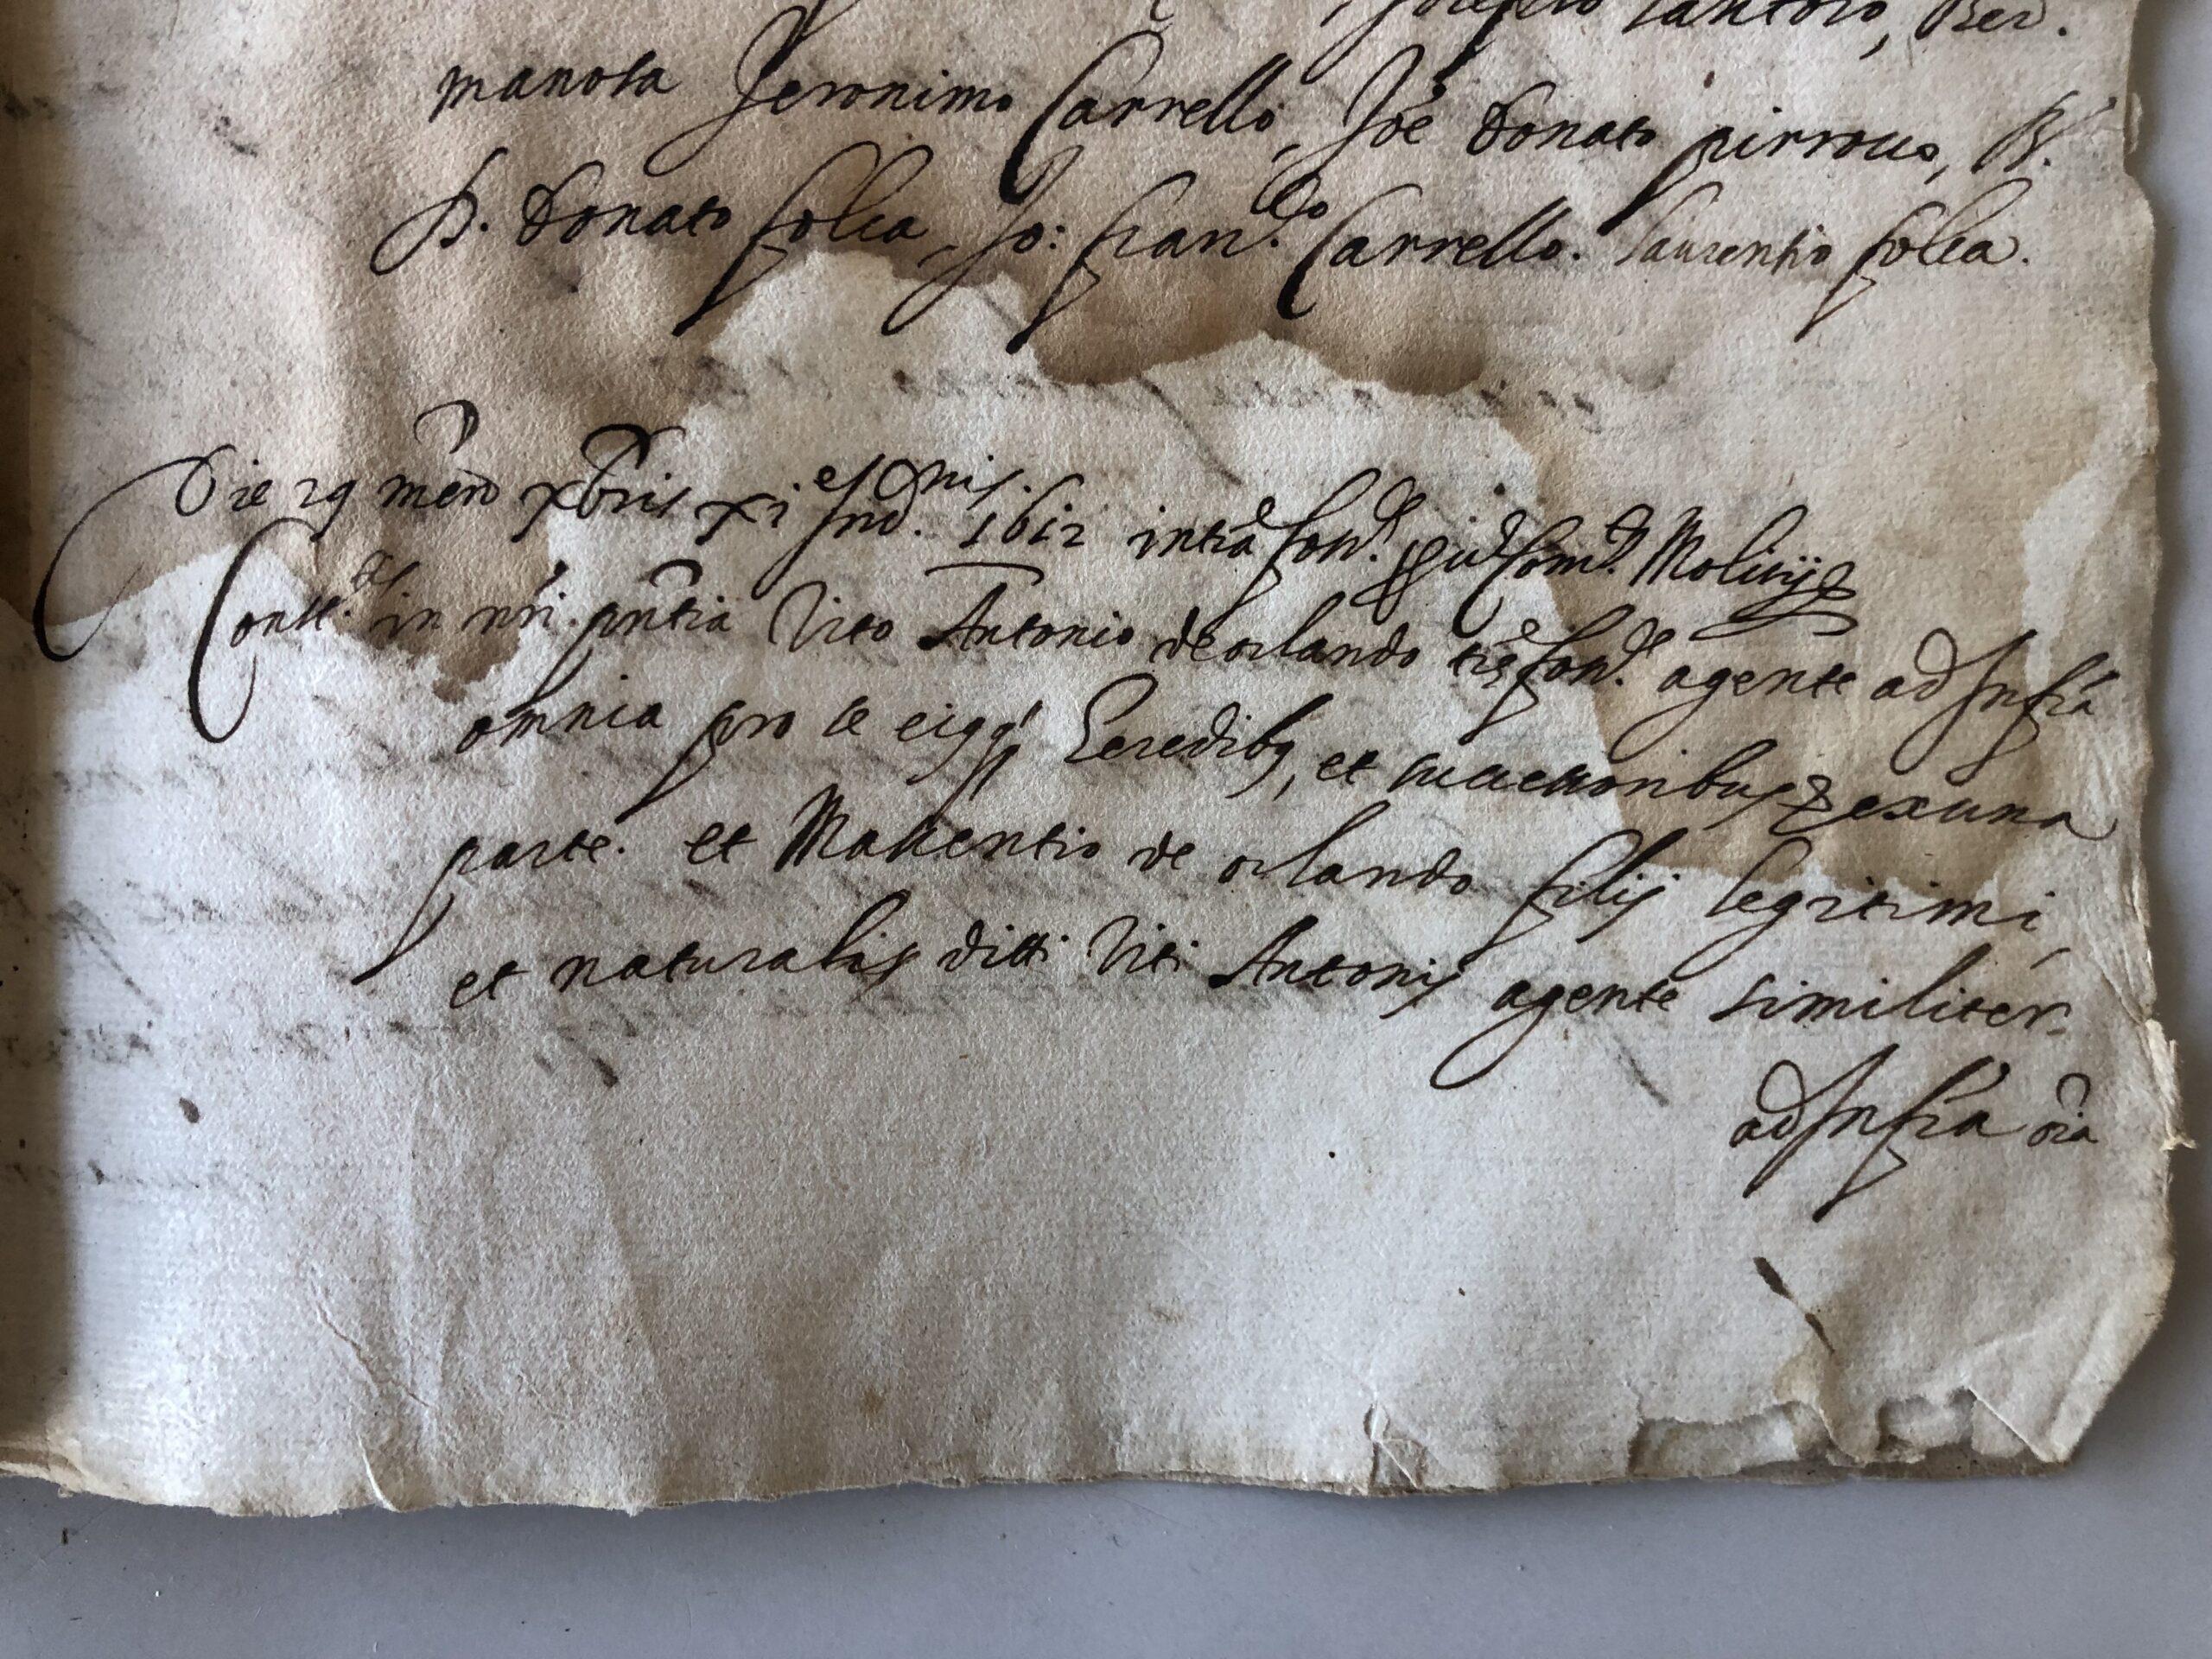 Josepho Santoro, Ber.
manota Jeronimo Carrello, Joe donato pirrono, D.
D. donato folea, Jo: fran.co Carrello. laurentio folea.
Die 19 men xbris xi ej Ind.nis. 1612 intra
Const.tis in nri pntia Vito Antonio de orlando agente ad Infra
omnia pro se eiqq heredibq, et successoribus & ex una
parte. et Mattentio de orlando filij legitimi,
et naturalis ditti Viti Antonij agente similiter
ad Infra oia